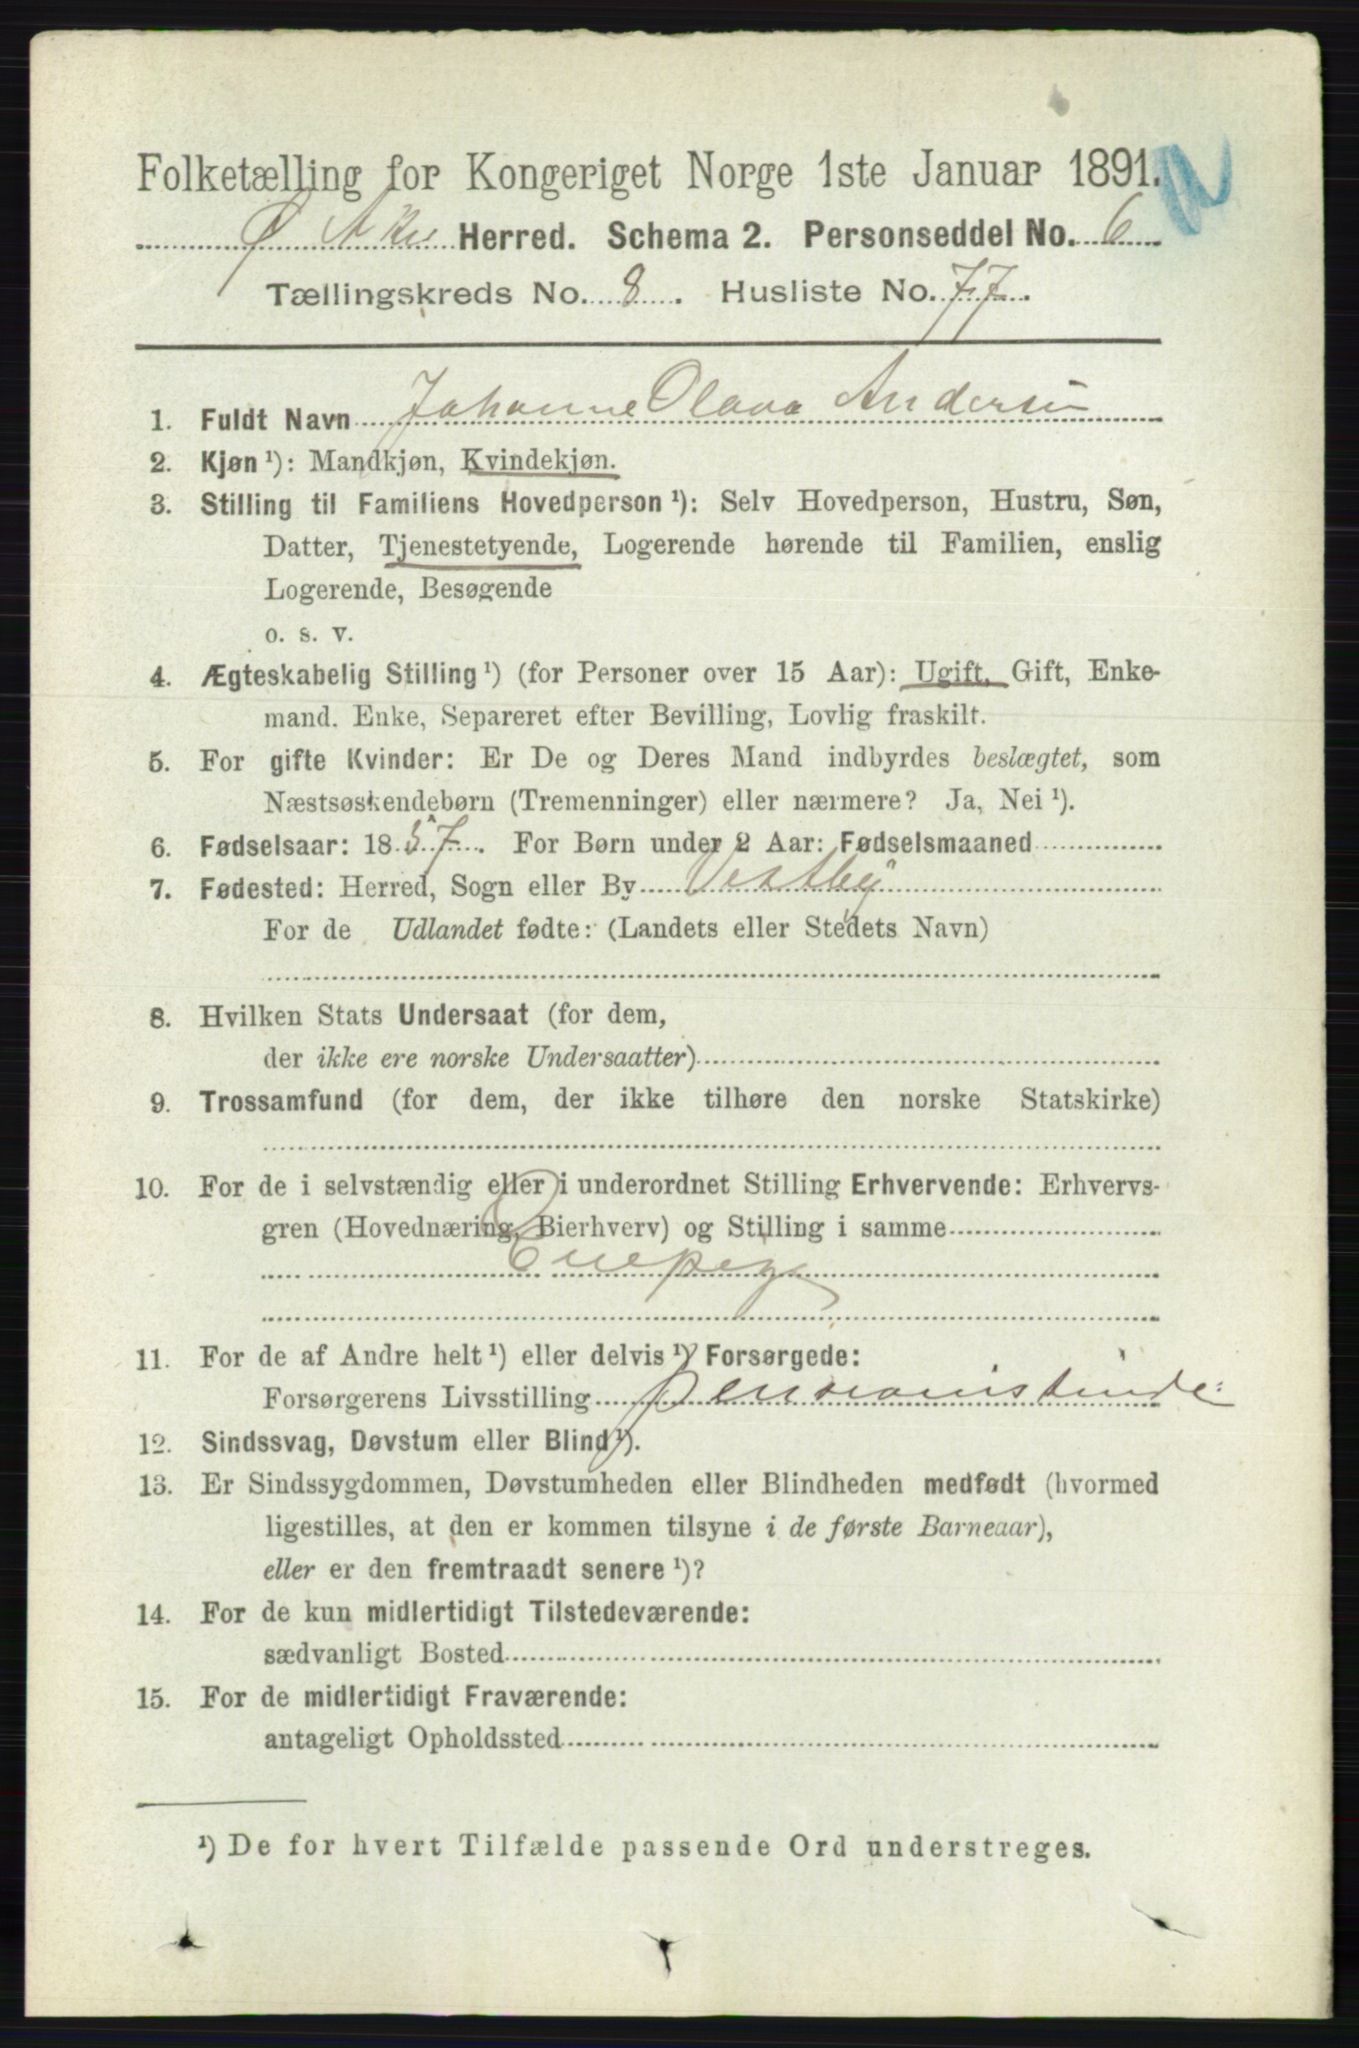 Folketælling for Kongeriget Norge 1ste Januar 1891.
Ø Aker Herred. Schema 2. Personseddel No. 6
Tællingskreds No. 8. Husliste No. 77.
1. Fuldt Navn Johanne Olava Andersen
2. Kjøn ¹): Mandkjøn, Kvindekjøn.
3. Stilling til Familiens Hovedperson ¹): Selv Hovedperson, Hustru, Søn,
Datter, Tjenestetyende, Logerende hørende til Familien, enslig
Logerende, Besøgende
o. s. v.
4. Ægteskabelig Stilling ¹) (for Personer over 15 Aar): Ugift, Gift, Enke-
mand. Enke, Separeret efter Bevilling, Lovlig fraskilt.
5. For gifte Kvinder: Er De og Deres Mand indbyrdes beslægtet, som
Næstsøskendebørn (Tremenninger) eller nærmere? Ja, Nei ¹).
6. Fødselsaar: 1857. For Børn under 2 Aar: Fødselsmaaned
7. Fødested: Herred, Sogn eller By Vestby
For de Udlandet fødte: (Landets eller Stedets Navn)
8. Hvilken Stats Undersaat (for dem,
der ikke ere norske Undersaatter)
9. Trossamfund (for dem, der ikke tilhøre den norske Statskirke)
10. For de i selvstændig eller i underordnet Stilling Erhvervende: Erhvervs-
gren (Hovednæring, Bierhverv) og Stilling i samme
Enepige
11. For de af Andre helt ¹) eller delvis ¹) Forsørgede:
Forsørgerens Livsstilling pensionistinde
12. Sindssvag, Døvstum eller Blind ¹).
13. Er Sindssygdommen, Døvstumheden eller Blindheden medfødt (hvormed
ligestilles, at den er kommen tilsyne i de første Barneaar),
eller er den fremtraadt senere ¹)?
14. For de kun midlertidigt Tilstedeværende:
sædvanligt Bosted
15. For de midlertidigt Fraværende:
antageligt Opholdssted
¹) De for hvert Tilfælde passende Ord understreges.